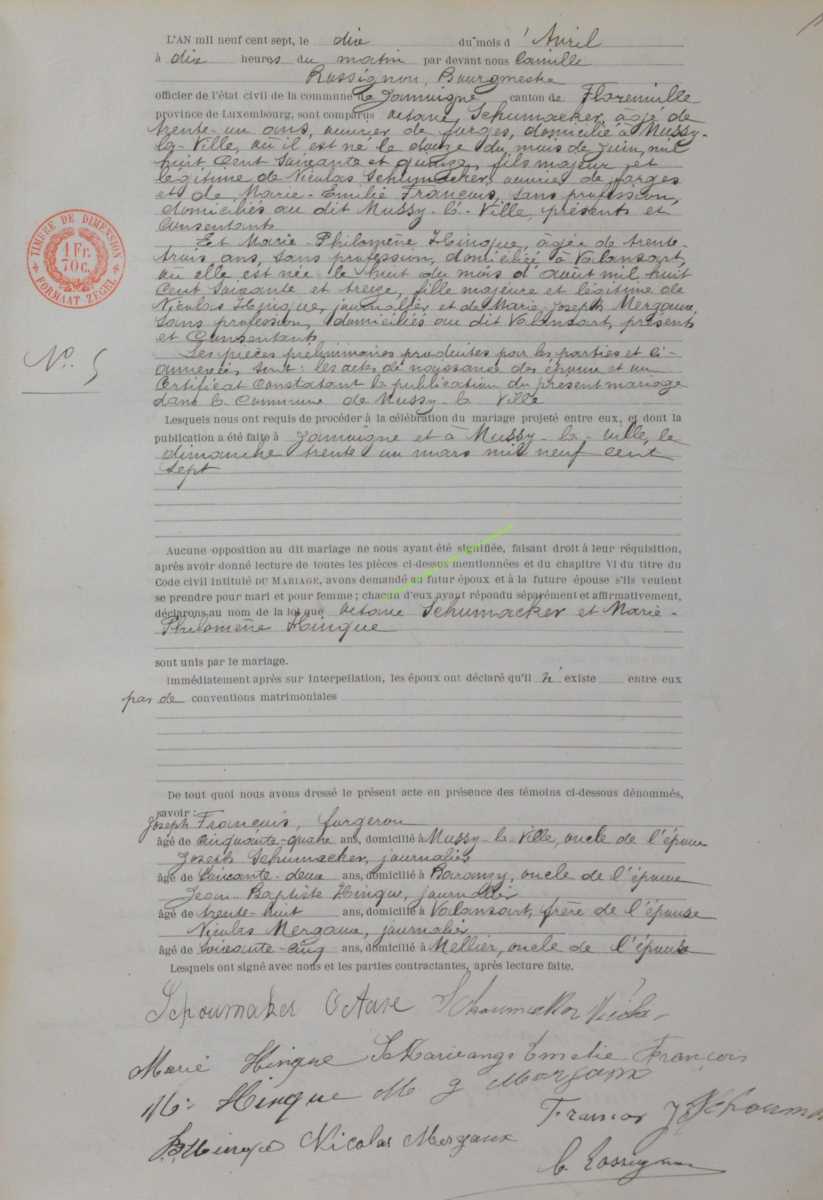 L'AN mil neuf cent sept, le dix du mois d'Avril
à dix heures du matin par devant nous Camille
Rossignon, Bourgmestre
officier de l'état civil de la commune de Jamoigne canton de Florenville
province de Luxembourg, sont comparus Octave Schumacker, âgé de
trente-un ans, ouvrier de forges, domicilié à Mussy-
la-Ville, où il est né le douze du mois de Juin, mil
huit Cent Soixante et quinze, fils majeur et
légitime de Nicolas Schumacker, ouvrier de forges
et de Marie-Emilie François, sans profession,
domiciliés au dit Mussy-la-Ville, présents et
Consentants
Et Marie-Philomène Hinque, âgée de trente-
trois ans, sans profession, domiciliée à Valansart,
où elle est née le huit du mois d'août mil huit
Cent Soixante et treize, fille majeure et légitime de
Nicolas Hinque, journalier et de Marie, Joseph Mergaux,
sans profession, domiciliés au dit Valansart, présents
et Consentants
Les pièces préliminaires produites par les parties et ci-
annexées sont: les actes de naissance des époux et un
Certificat Constatant la publication du présent mariage
dans la Commune de Mussy-la-Ville
Lesquels nous ont requis de procéder à la célébration du mariage projeté entre eux, et dont la
publication a été faite à Jamoigne et à Mussy-la-ville, le
dimanche trente un mars mil neuf cent
sept
TIMBRE DE DIMENSION
1 Fr.
70 c.
FORMAAT ZEGEL
No. 5
Aucune opposition au dit mariage ne nous ayant été signifiée, faisant droit à leur réquisition,
après avoir donné lecture de toutes les pièces ci-dessus mentionnées et du chapitre VI du titre du
Code civil intitulé DU MARIAGE, avons demandé au futur époux et à la future épouse s'ils veulent
se prendre pour mari et pour femme; chacun d'eux ayant répondu séparément et affirmativement,
déclarons au nom de la loi que Octave Schumacker et Marie-
Philomène Hinque
sont unis par le mariage.
Immédiatement après sur interpellation, les époux ont déclaré qu'il n'existe entre eux
pas de conventions matrimoniales
De tout quoi nous avons dressé le présent acte en présence des témoins ci-dessous dénommés,
savoir:
Joseph François, forgeron
âgé de Cinquante-quatre ans, domicilié à Mussy-la-Ville, oncle de l'époux
Joseph Schumacker, journalier
âgé de Soixante-deux ans, domicilié à Baranzy, oncle de l'époux
Jean-Baptiste Hinque, journalier
âgé de trente-huit ans, domicilié à Valansart, frère de l'épouse
Nicolas Mergaux, journalier
âgé de soixante-cinq ans, domicilié à Mellier, oncle de l'épouse
Lesquels ont signé avec nous et les parties contractantes, après lecture faite.
Schoumaker Octave Schoumacker Nicolas
Marie Hinque Emelie François
Ns Hinque M J Mergaux
François J Schoum
JB Hinque Nicolas Mergaux
C Rossignon